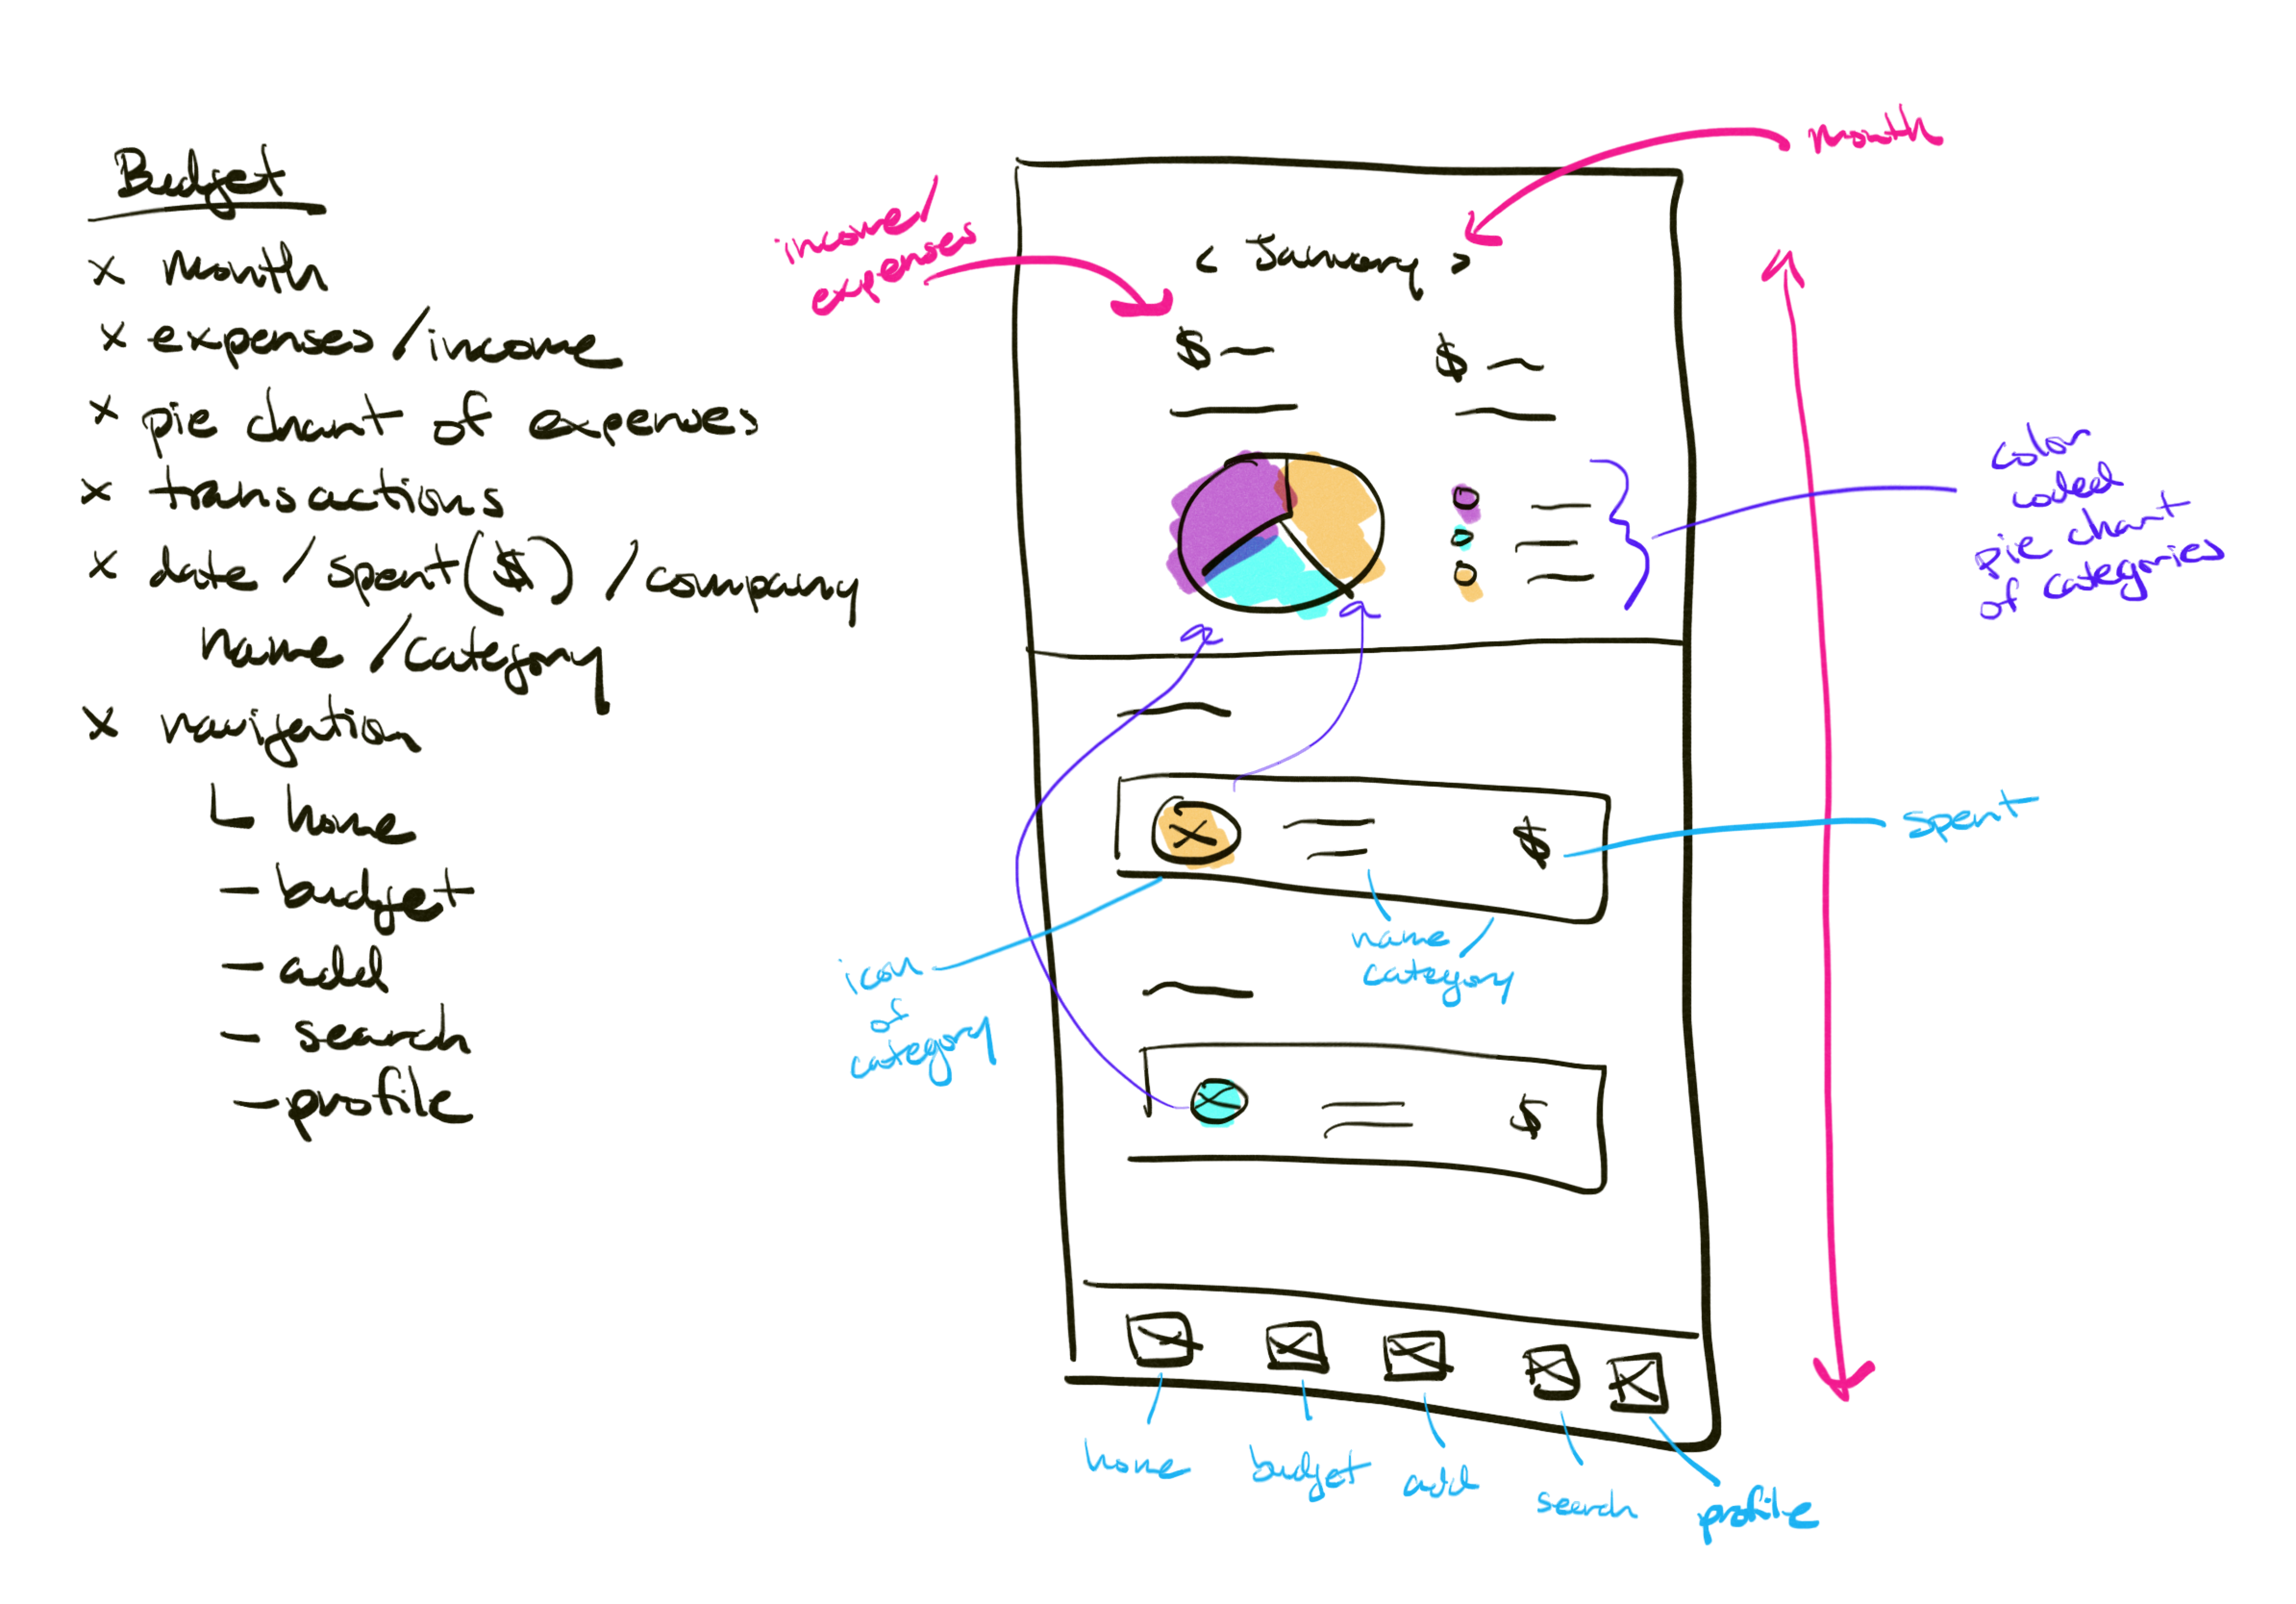 Budget
x month
x expenses/income
x pie chart of expenses
x transactions
x date / spent ($) / company
name / category
x navigation
└ home
- budget
- add
- search
- profile
month
income/
expenses
< January >
$
$
color
coded
pie chart
of categories
$
spent
name/
category
icon
of
category
$
home
budget
add
search
profile